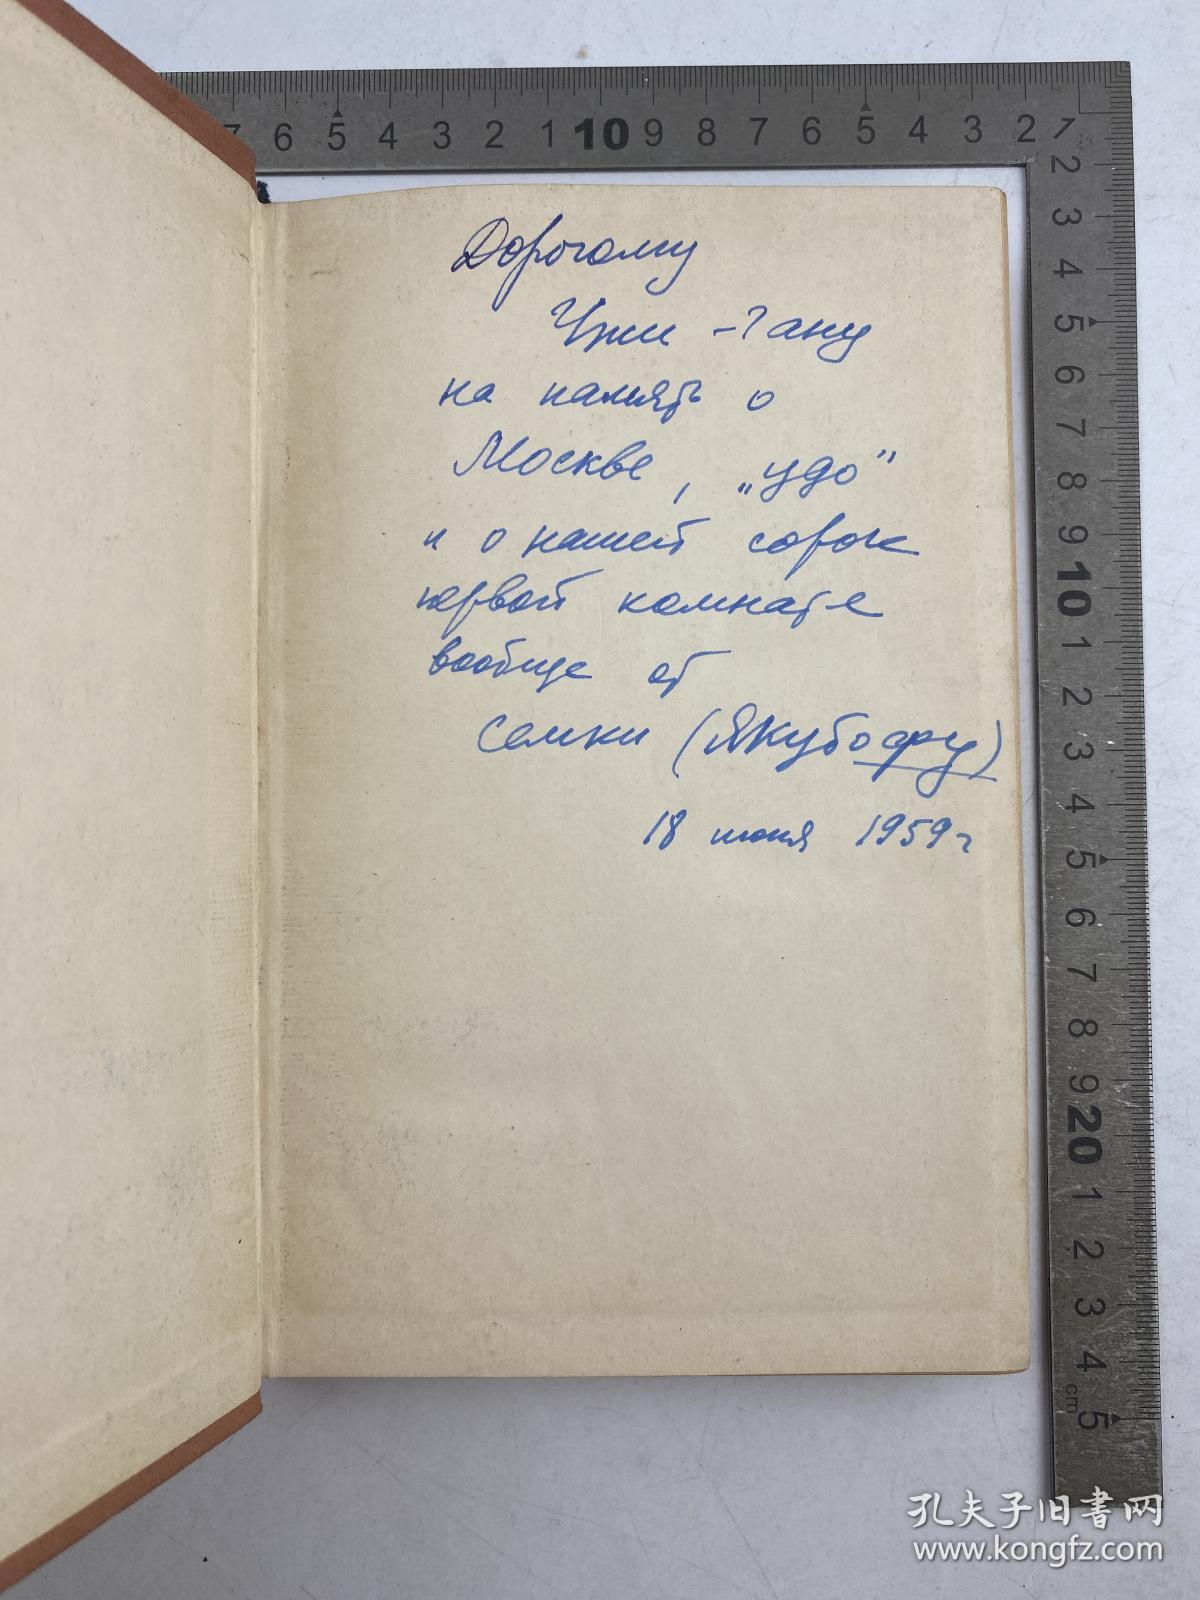 Дорогому
Чжи-Гану
на память о
Москве, „удо"
и о нашей сорок
первой комнате
вообще от
Семки (Якубофу)
18 июня 1959 г
7 6 5 4 3 2 1 10 9 8 7 6 5 4 3 2 1
2 3 4 5 6 7 8 9 10 1 2 3 4 5 6 7 8 9 20 1 2 3 4 5
cm
孔夫子旧书网
www.kongfz.com